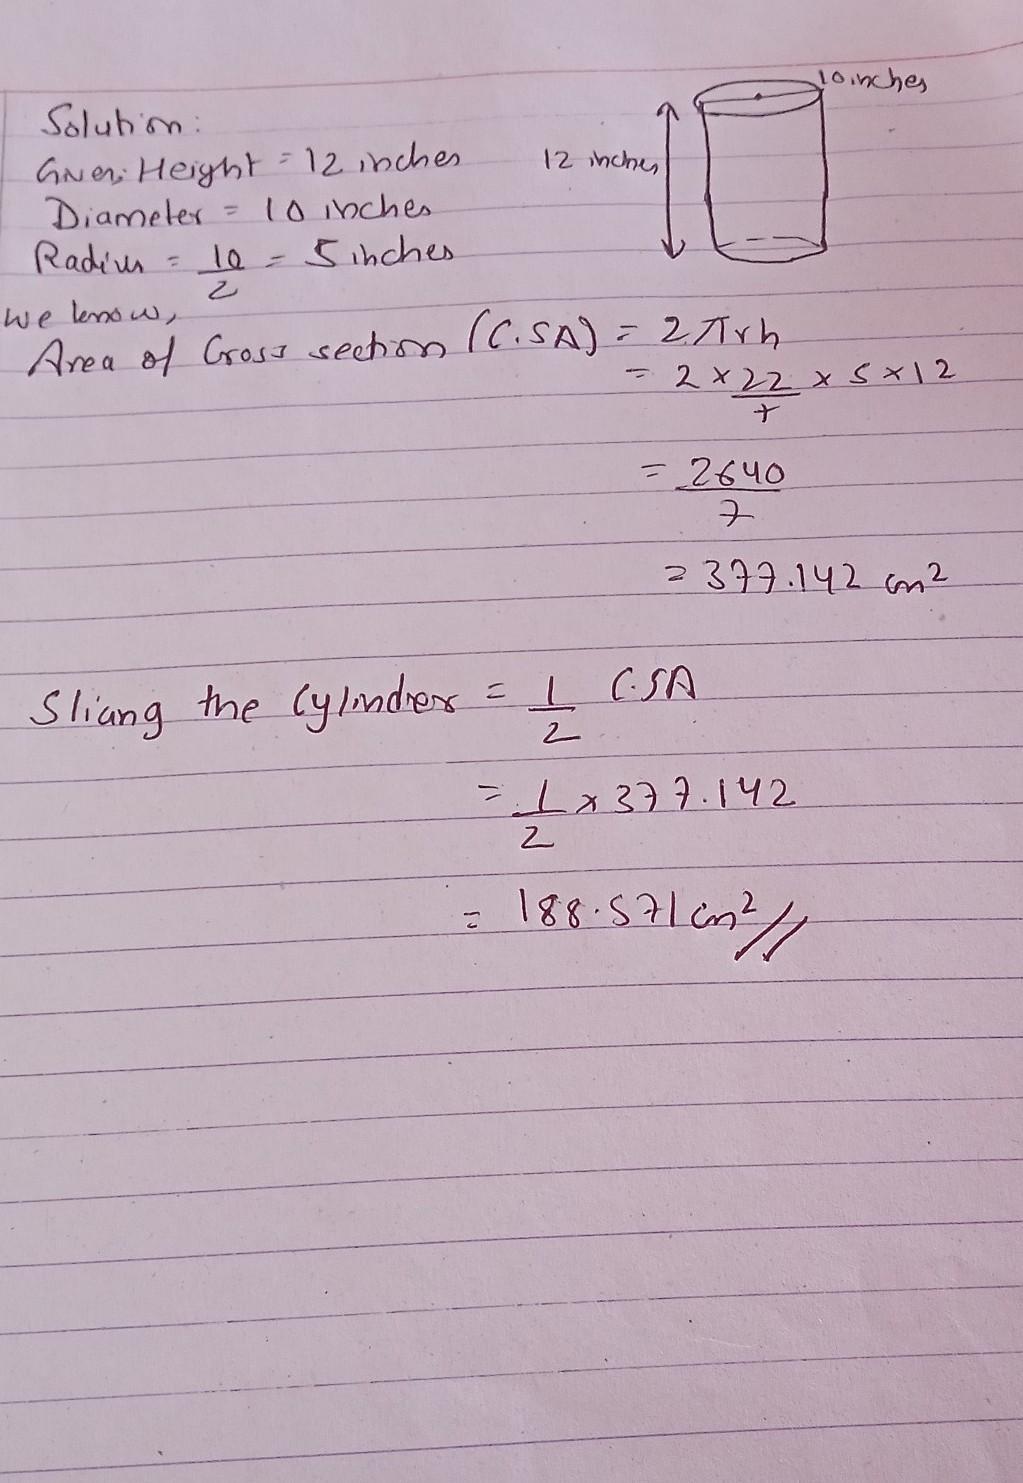 Solution:
Given: Height = 12 inches
Diameter = 10 inches
Radius = 10/2 = 5 inches
10 inches
12 inches
we know,
Area of Cross section (C.SA) = 2πrh
= 2 × 22/7 × 5 × 12
= 2640/7
= 377.142 cm²
Slicing the Cylinder = 1/2 C.SA
= 1/2 × 377.142
= 188.571 cm² //